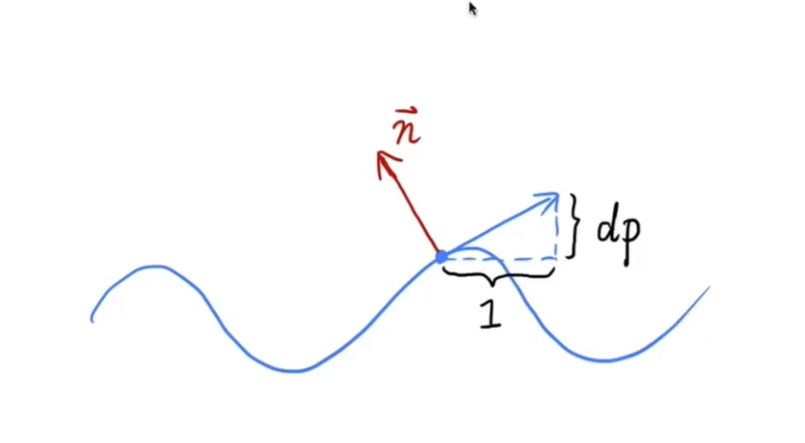 n⃗
} dp
1